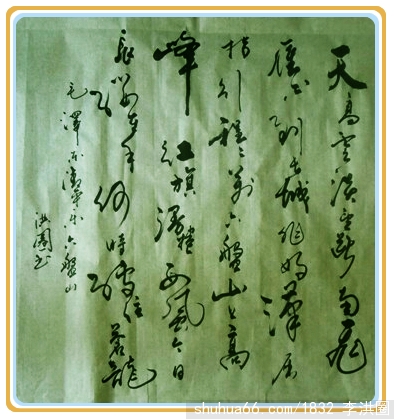 天高雲淡望斷南飛
雁不到長城非好漢屈
指行程二萬六盤山上高
峰紅旗漫捲西風今日
長纓在手何時縛住蒼龍
毛澤東清平樂六盤山
洪圖書
shuhua66.com/1832 李洪圖